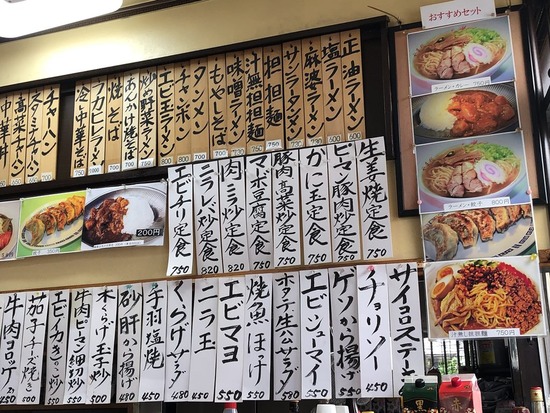 おすすめセット
ラーメン+カレー 750円
ラーメン+餃子 800円
汁無し担担麺 750円
200円
正油ラーメン
塩ラーメン
麻婆ラーメン
サンラータンメン
担担麺
汁無担担麺
味噌ラーメン
もやしそば
タンメン
チャンポン
エビ玉ラーメン
炒め野菜ラーメン
あんかけ焼そば
焼そば
フカヒレラーメン
冷し中華そば
チャーハン
高菜チャーハン
中華丼
生姜焼定食 750
ピーマン豚肉炒定食
かに玉定食
豚肉高菜炒定食
マーボ豆腐定食 750
肉ニラ炒定食 820
ニラレバ炒定食 820
エビチリ定食 750
サイコロステーキ
チョリソー 450
ゲソから揚げ
エビシューマイ 550
ホタテ生公サラダ 580
焼魚ほっけ 550
エビマヨ 550
ニラ玉
くらげサラダ 480
手羽塩焼 450
砂肝から揚げ 480
木くらげ玉子炒
牛肉ピーマン細切炒
エビチカきそ炒
茄子チーズ焼き
牛肉コロッケ